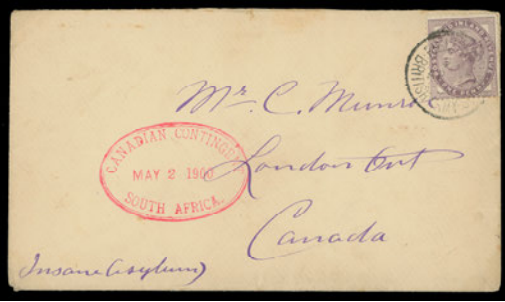 Mr. C. Munroe
London Ont
Canada
CANADIAN CONTINGENT
MAY 2 1900
SOUTH AFRICA.
Insane Asylum)